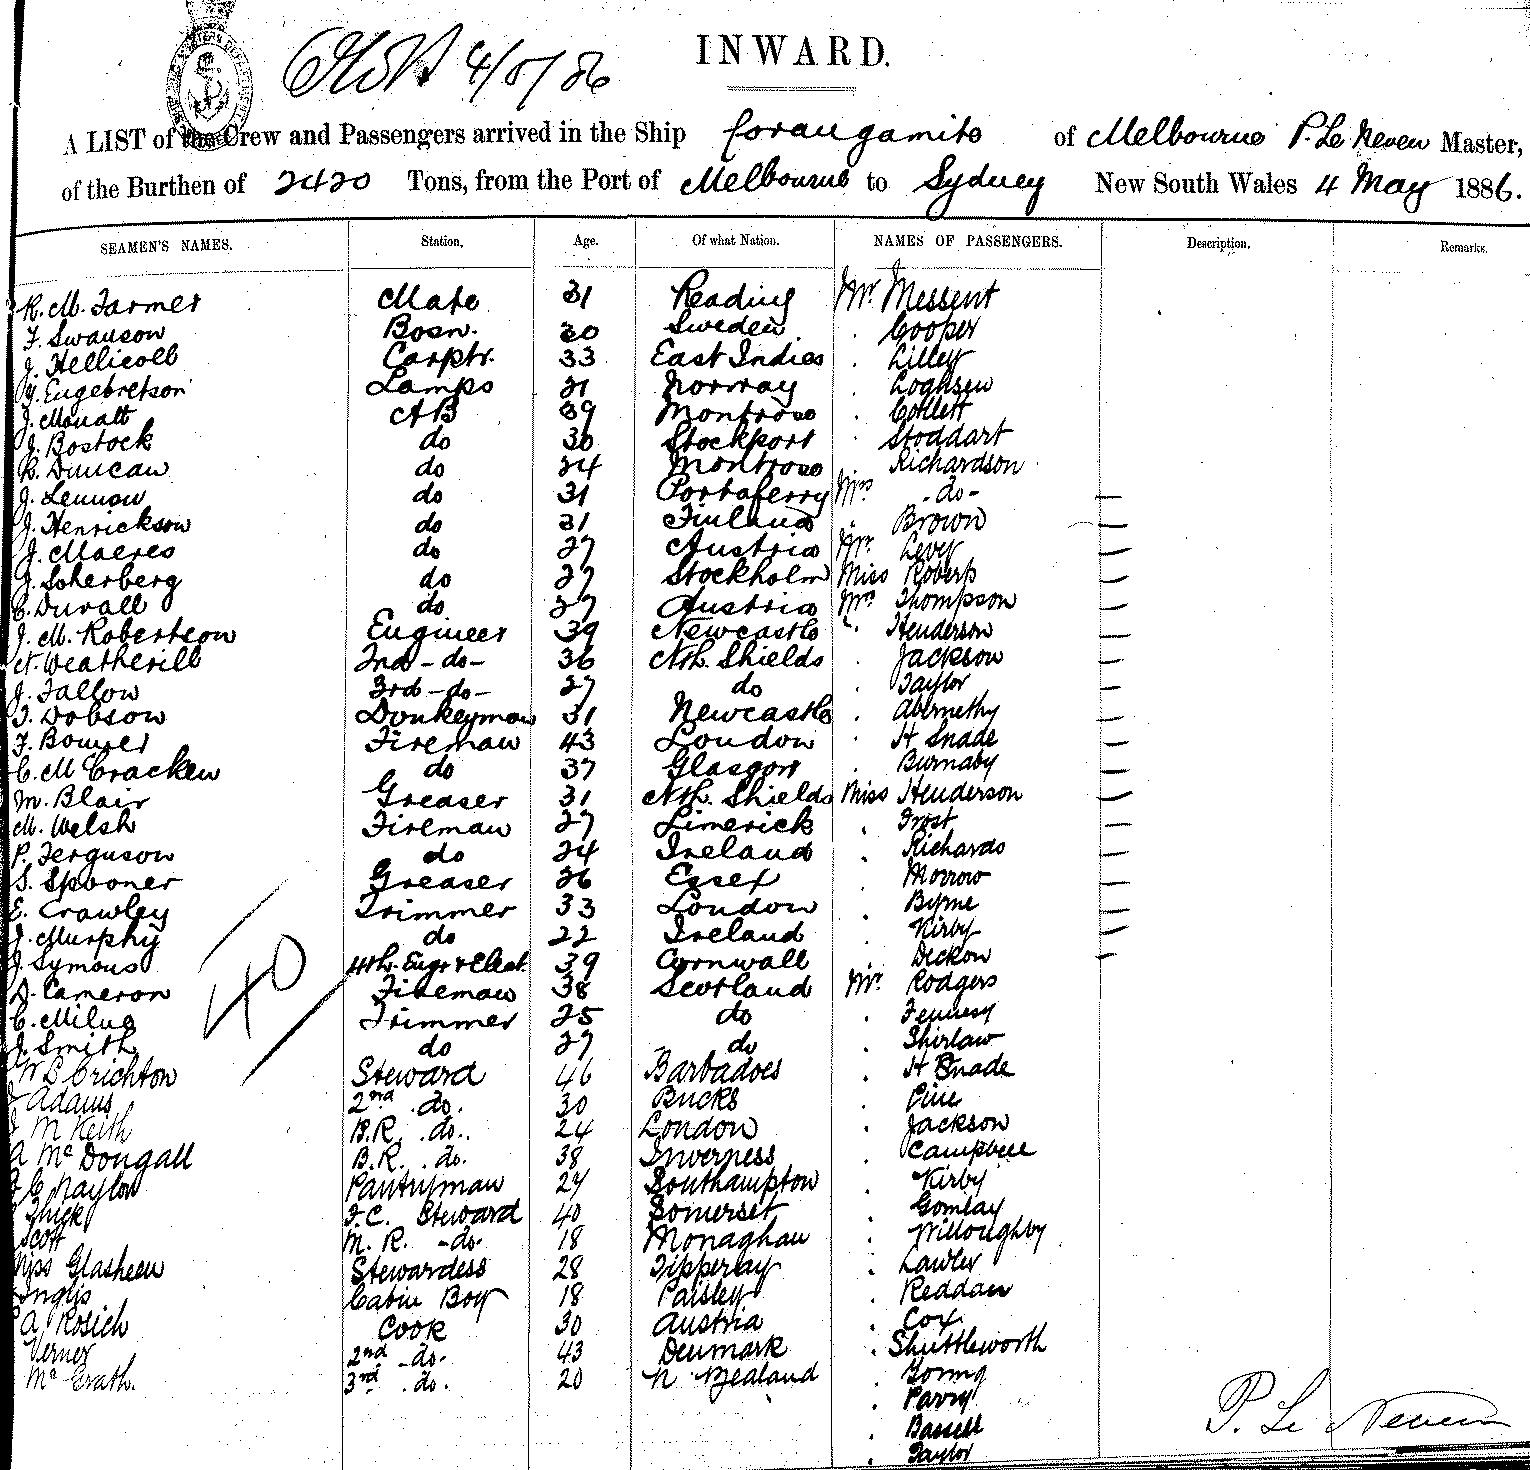 4/5/86
INWARD.
A LIST of the Crew and Passengers arrived in the Ship Corangamite of Melbourne P. Le Neven Master,
of the Burthen of 2420 Tons, from the Port of Melbourne to Sydney New South Wales 4 May 1886.
SEAMEN'S NAMES. Station. Age. Of what Nation. NAMES OF PASSENGERS. Description. Remarks.
R. M. Farmer Mate 31 Reading Mr. Messent
F. Swanson Bosn. 30 Sweden . Cooper
J. Hellicoll Carptr. 33 East Indies . Lilley
J. Eugebretson Lamps 31 Norway . Coghsen
J. Mouatt AB 39 Montrose . Collett
J. Bostock do 36 Stockport . Stoddart
R. Duncan do 24 Montrose Richardson
J. Lennon do 31 Portaferry Mrs -do-
J. Henrickson do 31 Finland . Brown
J. Maeres do 27 Austria Mr. Levy
J. Scherberg do 27 Stockholm Miss Roberts
C. Duvall do 27 Austria Mrs Thompson
J. M. Robertson Engineer 39 Newcastle . Henderson
N. Weatherill 2nd -do- 36 Nth. Shields . Jackson
J. Tallow 3rd -do- 27 do . Taylor
T. Dobson Donkeyman 31 Newcastle . Abernethy
F. Bowyer Fireman 43 London . H Snade
C. McCracken do 37 Glasgow . Burnaby
M. Blair Greaser 31 Nth. Shields Miss Henderson
M. Welsh Fireman 27 Limerick . Frost
P. Ferguson do 24 Ireland . Richards
S. Spooner Greaser 26 Essex . Morrow
E. Crawley Trimmer 33 London . Byrne
J. Murphy do 22 Ireland . Kirby
J. Symons 4th. Engr & Elect. 39 Cornwall Dickon
D. Cameron Fireman 38 Scotland Mr. Rodgers
C. Milne Trimmer 25 do . Fennesy
J. Smith do 27 do . Shirlaw
40
W S Crichton Steward 46 Barbadoes . H Snade
Adams 2nd .do. 30 Bucks . Pine
M Keith B.R. .do.. 24 London . Jackson
A McDougall B.R. .do. 38 Inverness . Campbell
C Naylor Pantryman 27 Southampton . Kirby
Thick F.C. Steward 40 Somerset . Gomlay
Scott M. R. -do- 18 Monaghan . Willoughby
Miss Glasheen Stewardess 28 Tipperay . Lawler
Inglis Cabin Boy 18 Paisley . Reddan
A Rosich Cook 30 Austria . Cox
Verner 2nd -do- 43 Denmark . Shuttleworth
McGrath. 3rd .do. 20 N Zealand . Young
. Parry
. Bassell
. Taylor
P. Le Neven